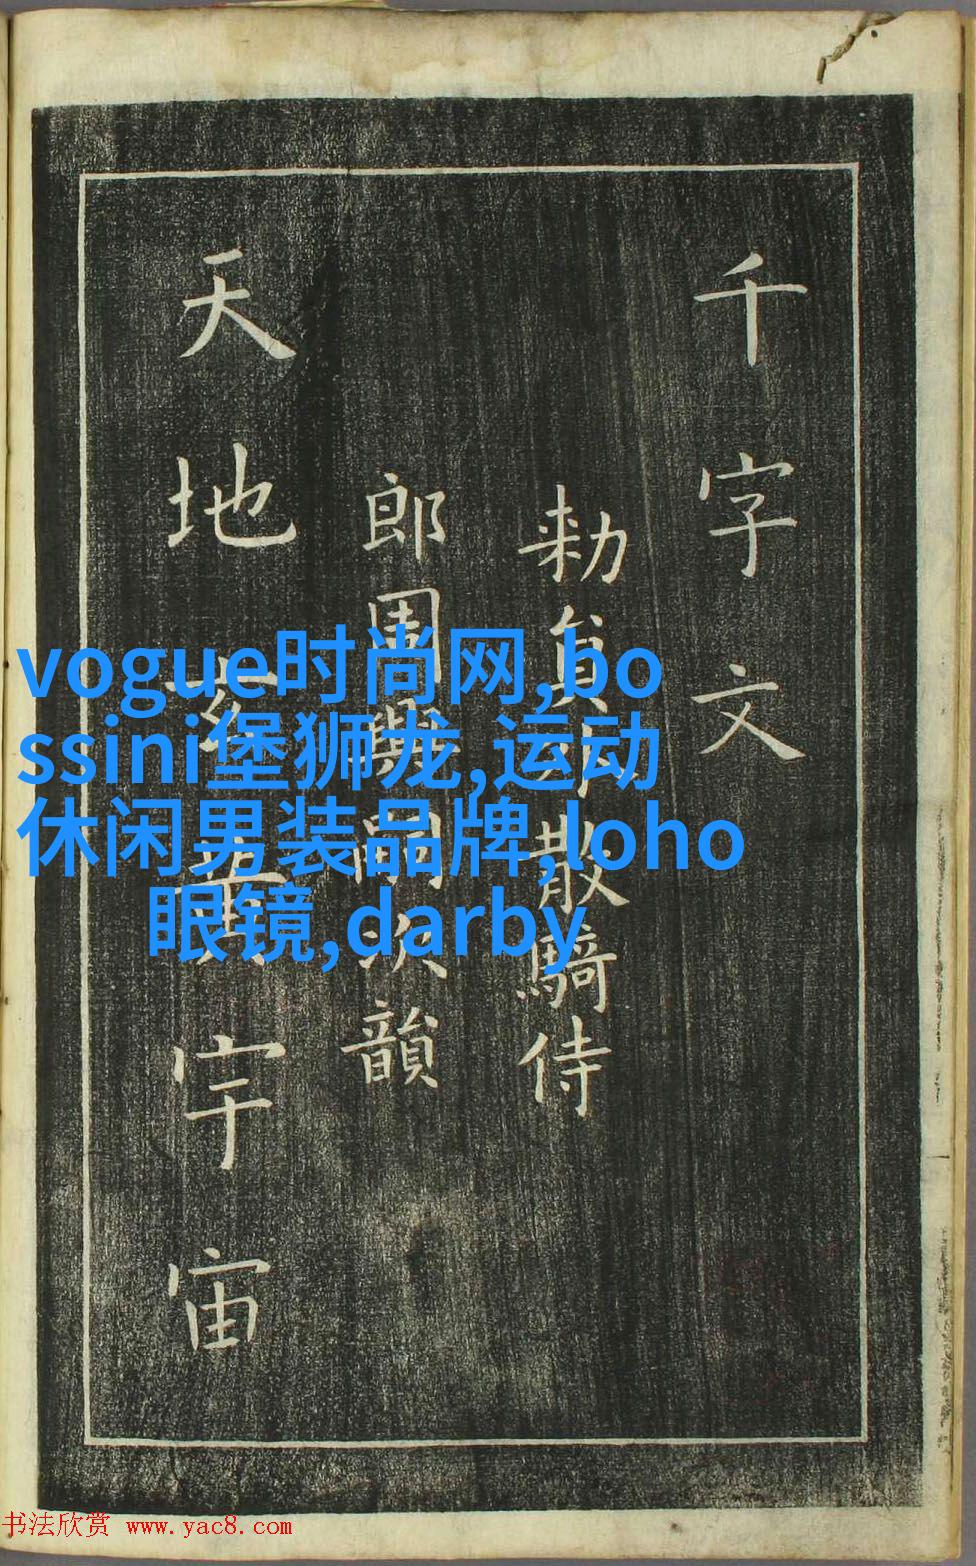 千字文
勑貟外散騎侍
郎周興嗣次韻
天地玄黃宇宙
vogue时尚网,bo
ssini堡狮龙,运动
休闲男装品牌,loho
眼镜,darby
书法欣赏 www.yac8.com